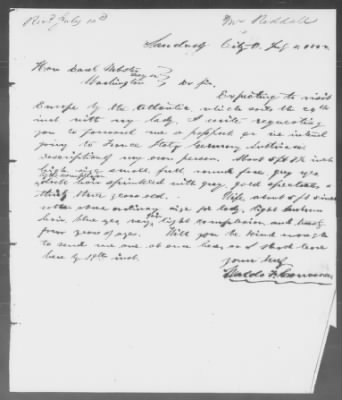 Recd July 10th
Mr Riddall
Sandusky City O. July 4, 1852.
Hon Danl Webster
Washington Dr Sir,
Expecting to visit
Europe by the Atlantic, which sails the
inst with my lady. I write requesting
you to forward me a passport as we intend
going to France Italy Germany
description of my own person. About 5 ft
light complexion
small full round face, grey eyes
dark hair sprinkled with grey, gold spectacles &
thirty three years old. Wife about 5 ft
rather above ordinary size for lady, light brown
hair, blue eyes, light complexion and twenty
four years of age. Will you be kind enough
to send me one at once here, as I shall leave
here by 19th inst.
Yours truly
Waldo F.